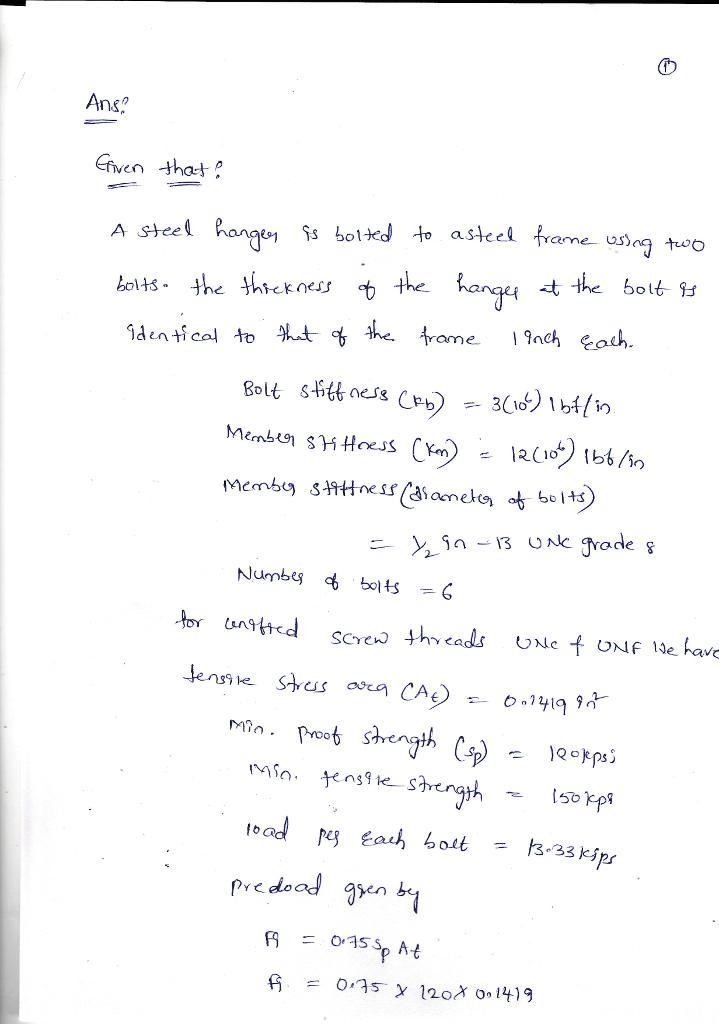 ①
Ans:
Given that:
A steel hanger is bolted to a steel frame using two
bolts. the thickness of the hanger at the bolt is
identical to that of the frame 1 inch each.
Bolt stiffness (kb) = 3(10⁶) lbf/in
Member stiffness (km) = 12(10⁶) lbf/in
Member stiffness (diameter of bolts)
= 1/2 in - 13 UNC grade 8
Number of bolts = 6
for unified screw threads UNC & UNF We have
tensile stress area (At) = 0.1419 in²
Min. proof strength (Sp) = 120kpsi
Min. tensile strength = 150 kpi
load per each bolt = 13.33 kips
Preload given by
Fi = 0.75 Sp At
Fi = 0.75 x 120 x 0.1419